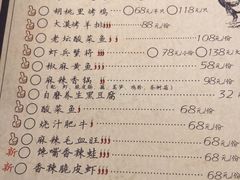 胡桃里烤鸡 68元/半只 118元/只
大漠烤羊排 88元/份
老坛酸菜鱼 108元/份
虾兵蟹将 78元/小份 138元/份
椒麻黄鱼 58元/份
麻辣香锅 98元/份
自磨养生黑豆腐 32元/
酸菜鱼 68元/份
烧汁肥牛 68元/份
麻辣毛血旺 68元/份
新 馋嘴香辣蛙 68元/份
新 香辣脆皮虾 68元/份